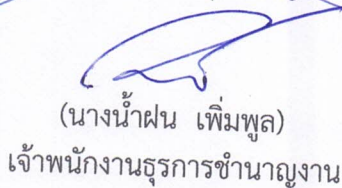 (นางน้ำฝน เพิ่มพูล)
เจ้าพนักงานธุรการชำนาญงาน